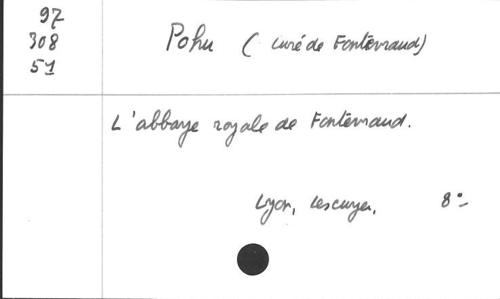 97
308
51
Pohu ( curé de Fontevraud)
L'abbaye royale de Fontevraud.
Lyon, Lescuyer, 8°